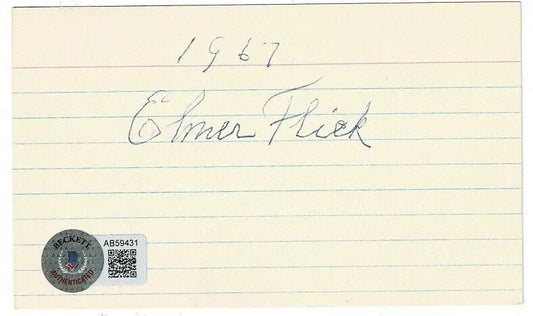 1967
Elmer Flick
BECKETT
AB59431
AUTHENTICATED